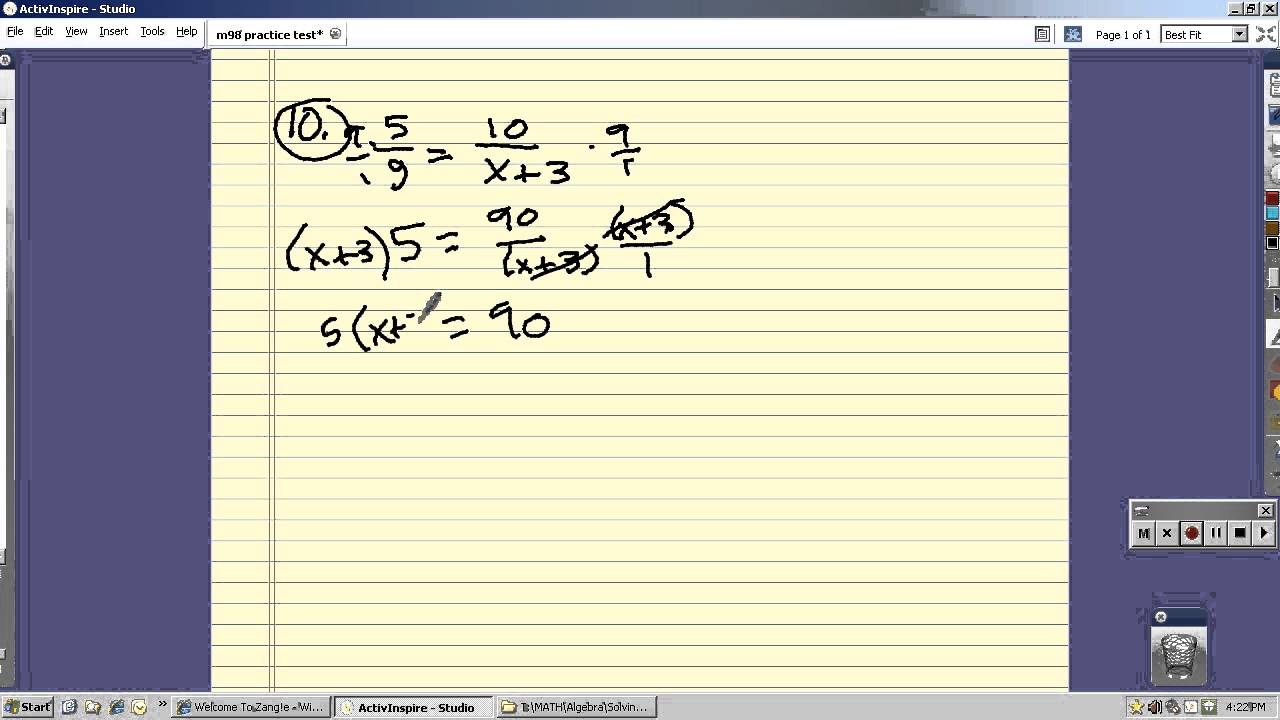 ActivInspire - Studio
File Edit View Insert Tools Help
m98 practice test*
Page 1 of 1
Best Fit
10. 9/1 · 5/9 = 10/x+3 · 9/1
(x+3)5 = 90/(x+3) (x+3)/1
5(x+ = 90
M
Start
»
Welcome To Zangle - Wi...
ActivInspire - Studio
T:\MATH\Algebra\Solvin...
4:22 PM